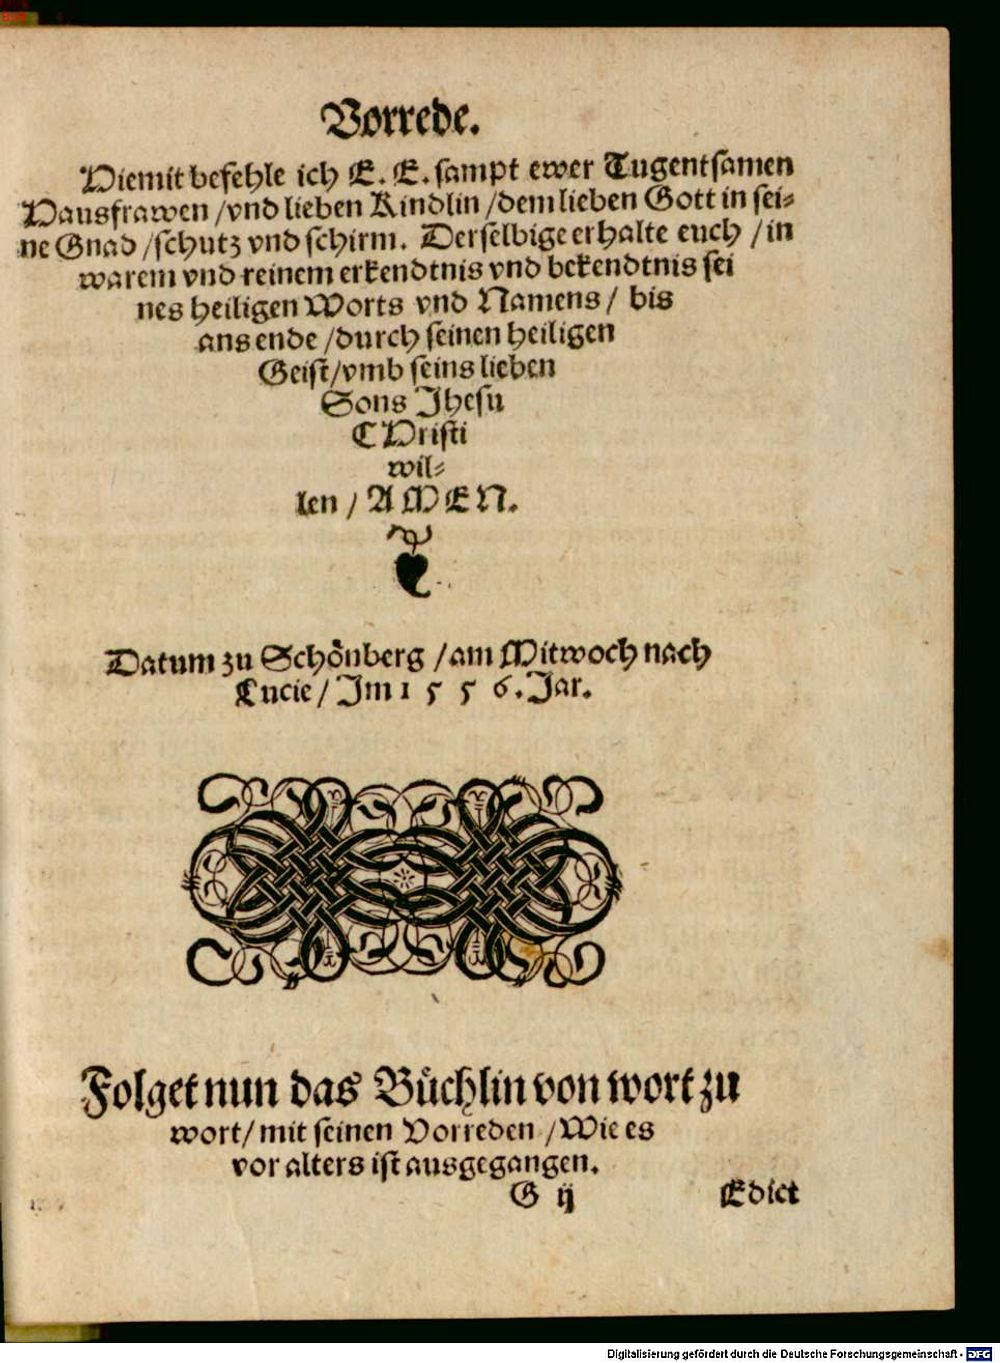 Vorrede.
Hiemit befehle ich E. E. sampt ewer Tugentsamen
Hausfrawen / vnd lieben Kindlin / dem lieben Gott in sei⸗
ne Gnad / schutz vnd schirm. Derselbige erhalte euch / in
warem vnd reinem erkendtnis vnd bekendtnis sei
nes heiligen Worts vnd Namens / bis
ans ende / durch seinen heiligen
Geist / vmb seins lieben
Sons Jhesu
CHristi
wil⸗
len / AMEN.
Datum zu Schönberg / am Mitwoch nach
Lucie / Im 1556. Jar.
Folget nun das Büchlin von wort zu
wort / mit seinen Vorreden / Wie es
vor alters ist ausgegangen.
G ij Edict
Digitalisierung gefördert durch die Deutsche Forschungsgemeinschaft - DFG